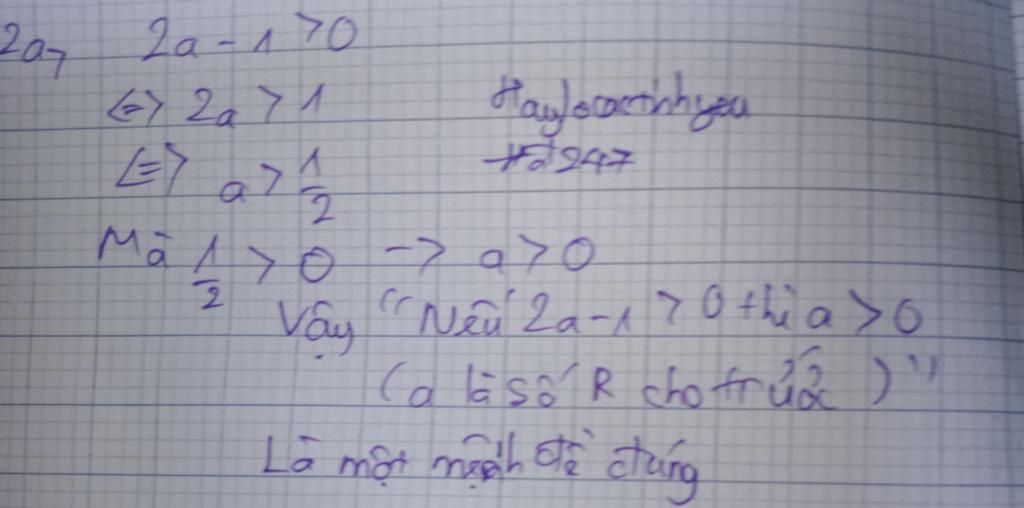 2a, 2a - 1 > 0
<=> 2a > 1
<=> a > 1/2
Haylocanhyeu
Hd247
Mà 1/2 > 0 -> a > 0
Vậy "Nếu 2a-1 > 0 thì a > 0
(a là số R cho trước)"
Là một mệnh đề đúng